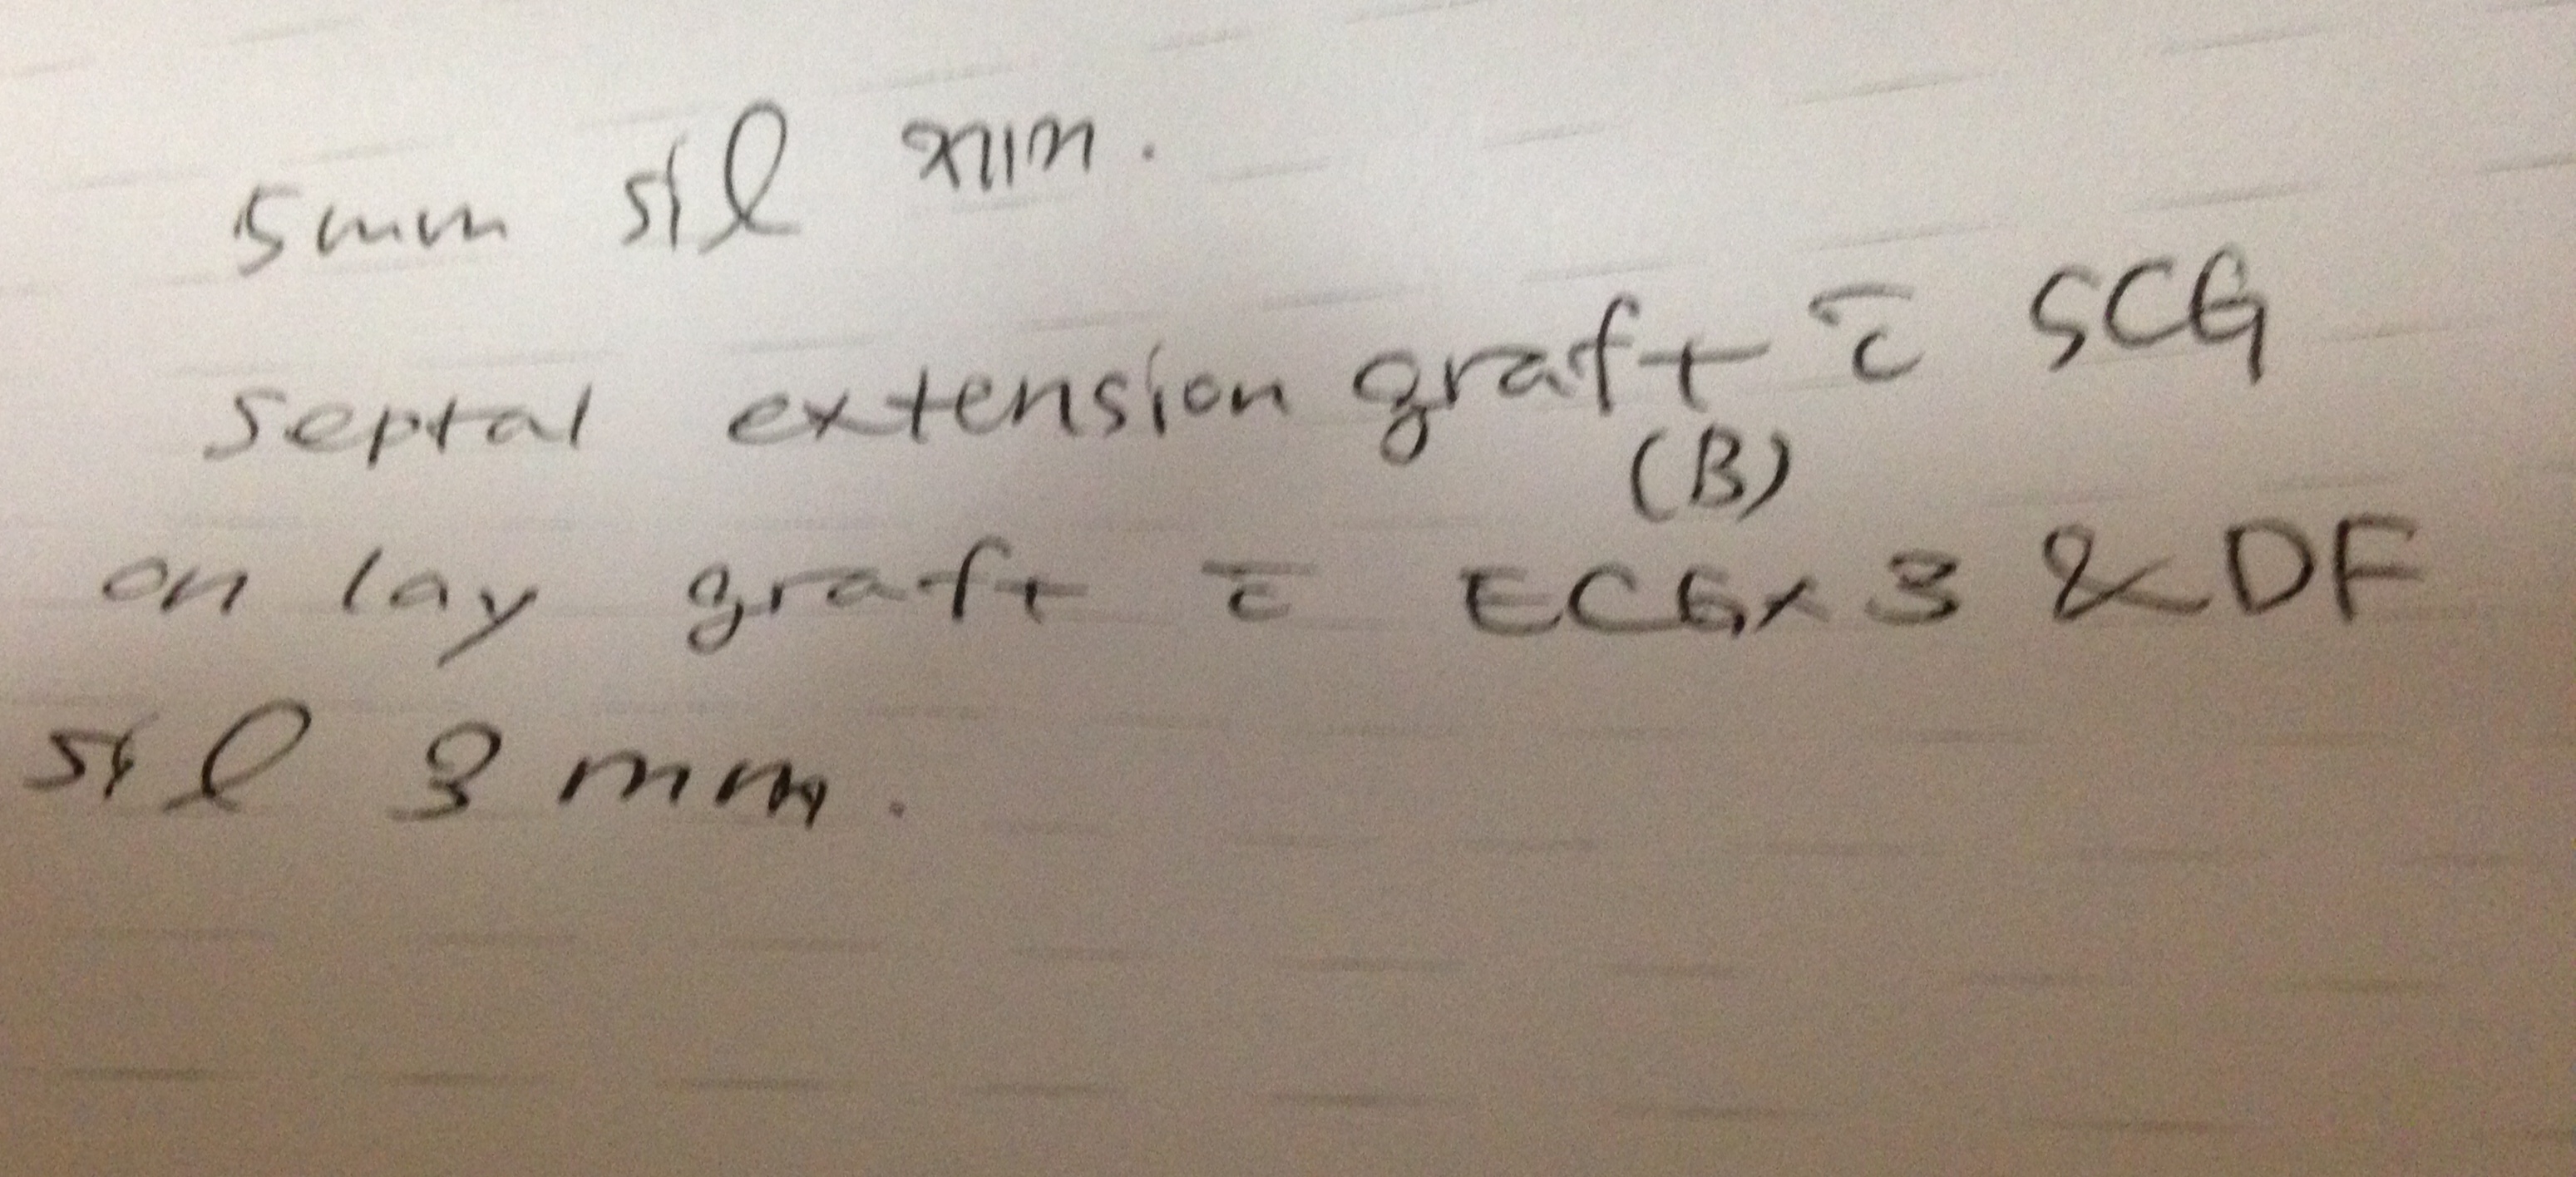 5mm sil
septal extension graft c̄ SCG
(B)
on lay graft c̄ ECG x 3 & DF
sil 3 mm.